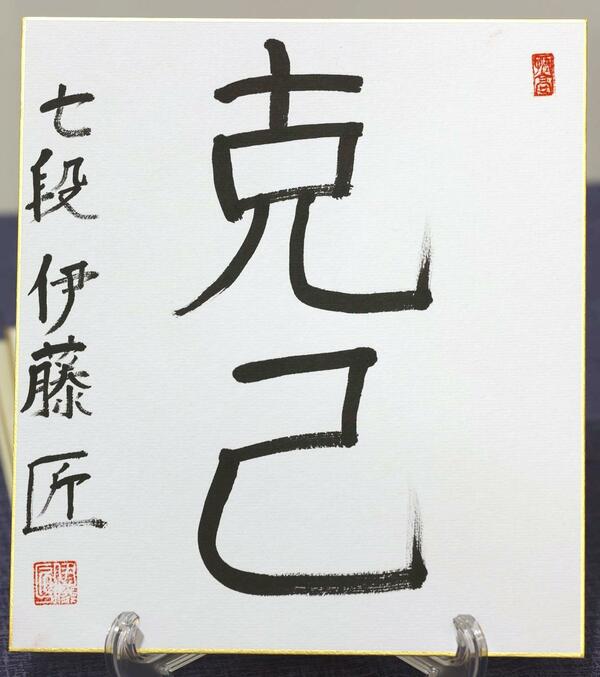 克己
七段 伊藤 匠